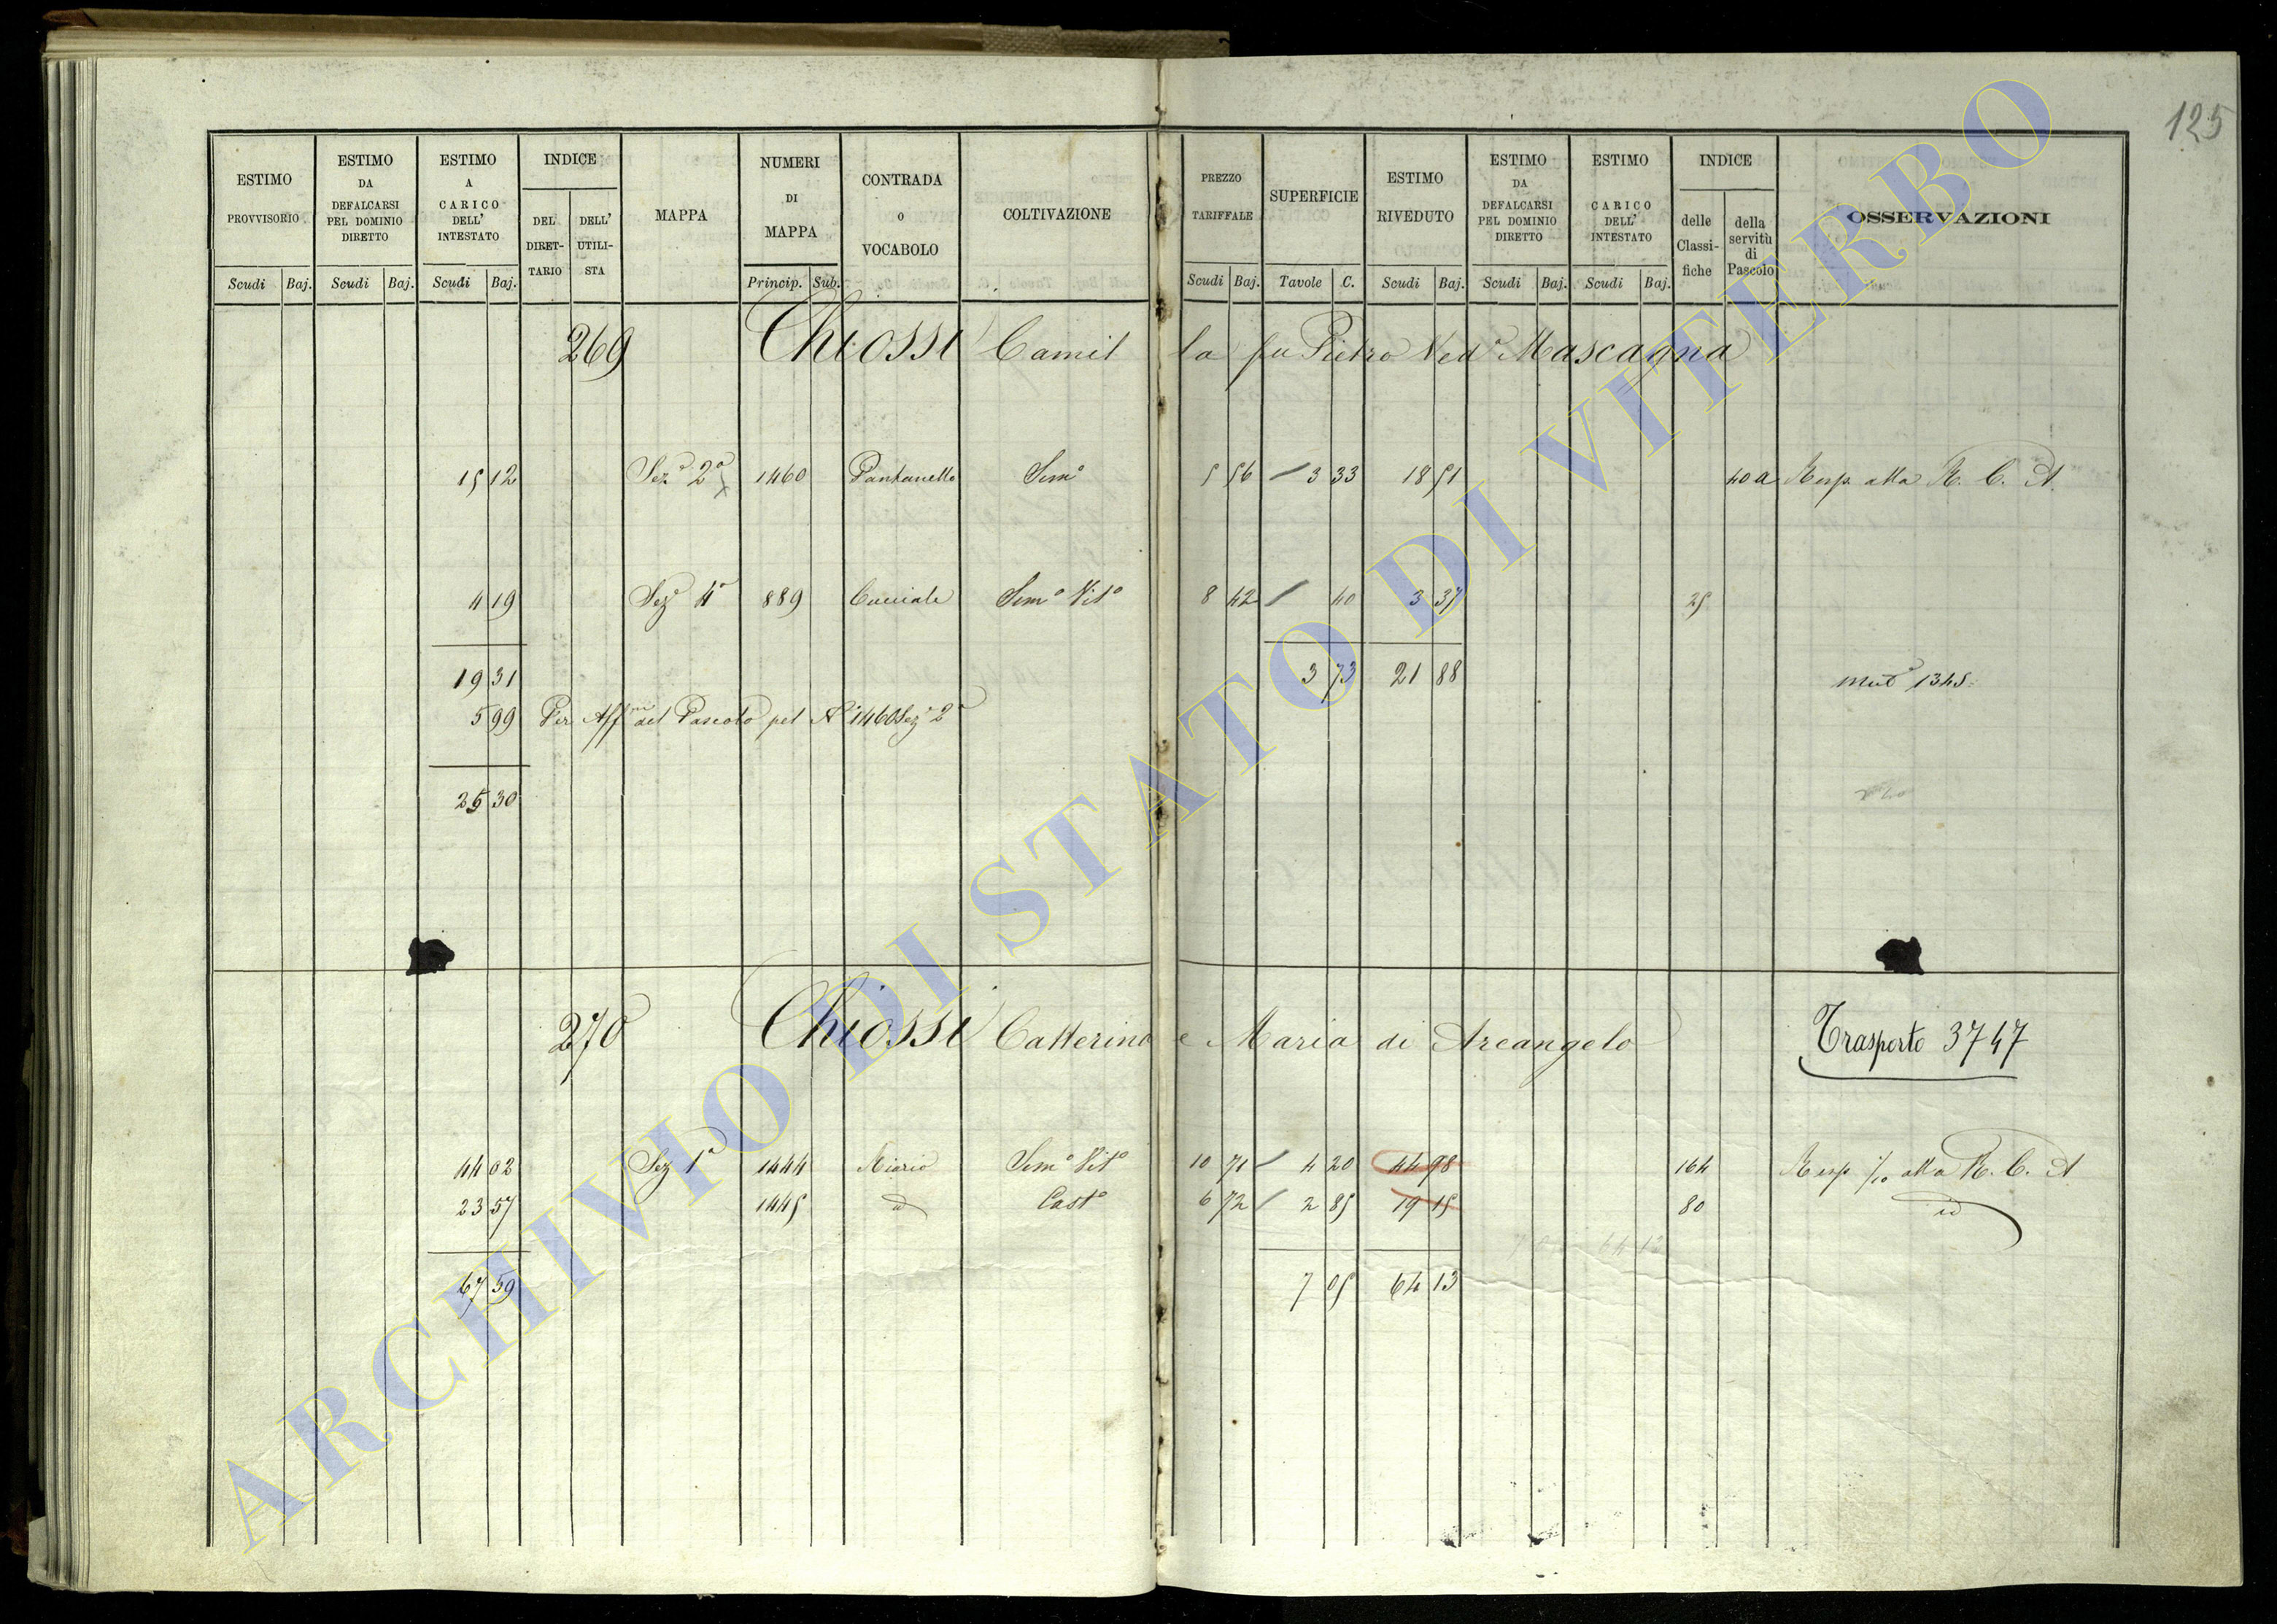 125
ESTIMO PROVVISORIO Scudi Baj.
ESTIMO DA DEFALCARSI PEL DOMINIO DIRETTO Scudi Baj.
ESTIMO A CARICO DELL' INTESTATO Scudi Baj.
INDICE DEL DIRET-TARIO DELL' UTILI-STA
MAPPA
NUMERI DI MAPPA Princip. Sub.
CONTRADA O VOCABOLO
COLTIVAZIONE
PREZZO TARIFFALE Scudi Baj.
SUPERFICIE Tavole C.
ESTIMO RIVEDUTO Scudi Baj.
ESTIMO DA DEFALCARSI PEL DOMINIO DIRETTO Scudi Baj.
ESTIMO A CARICO DELL' INTESTATO Scudi Baj.
INDICE delle Classi-fiche della servitù di Pascolo
OSSERVAZIONI
269 Chiossi Camilla fu Pietro Ved.a Mascagna
15 12 Sez.e 2a 1460 Pantanello Sem.o 5 56 3 33 18 51 40 a Resp. alla R. C. A.
4 19 Sez.e 4a 889 Cucciale Sem.o Vit.o 8 42 40 3 37 25
19 31 3 73 21 88 1345
5 99 Per Aff.ne del Pascolo pel N.o 1460 Sez.e 2a
25 30
270 Chiossi Catterina e Maria di Arcangelo Trasporto 3747
44 02 Sez 1a 1444 Riario Sem.o Vit.o 10 71 4 20 44 98 164 Resp 1/10 alla R. C. A
23 57 1445 id Cast.o 6 72 2 85 19 15 80 id
67 59 7 05 64 13
ARCHIVIO DI STATO DI VITERBO